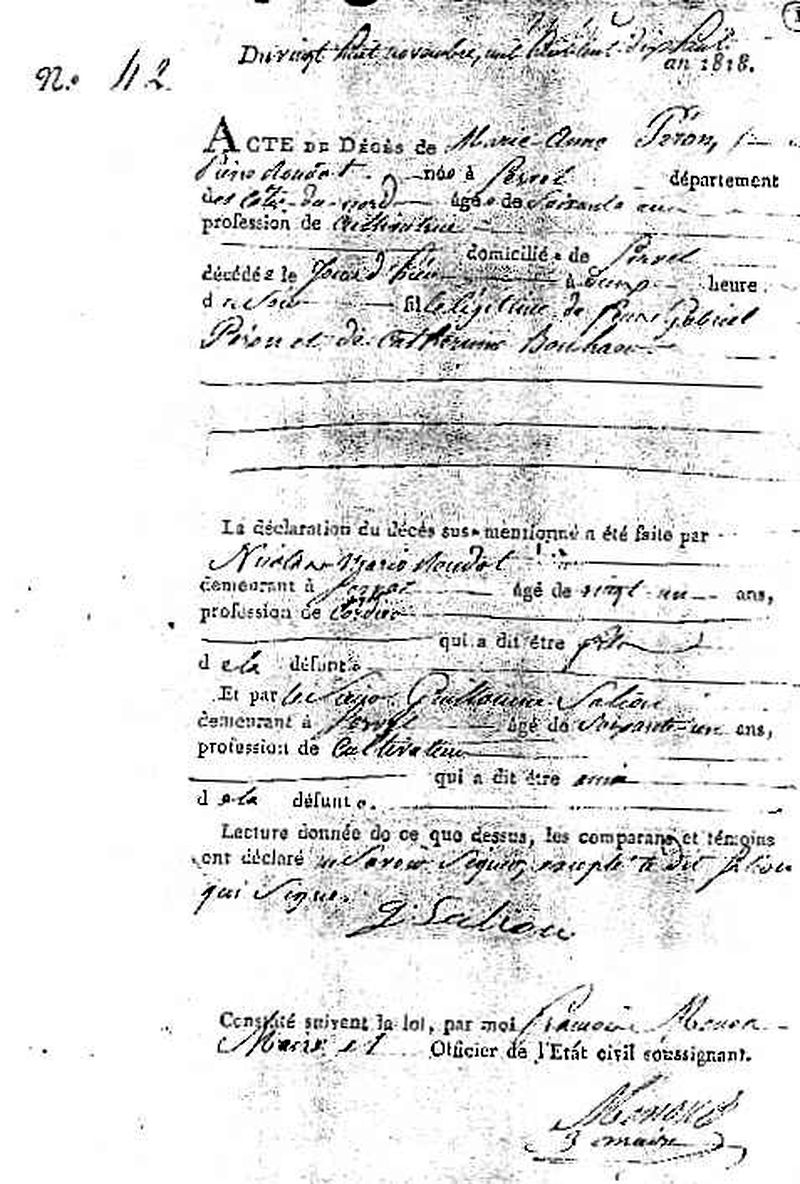 N.o 42
Du vingt huit novembre, mil huit cent dix huit
an 1818.
ACTE DE Décès de Marie-Anne Péron, f
née à Perret département
des côtes-du-nord âgée de soixante ans
profession de cultivatrice
domiciliée de Perret
décédée le jour d'hier à cinq heure
du soir fille légitime de Gabriel
Péron et de Catherine
La déclaration du décès sus-mentionné a été faite par
Nicolas Marie
demeurant à Perret âgé de vingt-un ans,
profession de cordier
qui a dit être fils
de la défunte
Et par le Sieur Guillaume Saliou
demeurant à Perret âgé de soixante-un ans,
profession de Cultivateur
qui a dit être ami
de la défunte.
Lecture donnée de ce que dessus, les comparans et témoins
ont déclaré ne savoir signer, excepté le dit Saliou
qui signe.
g Saliou
Constaté suivant la loi, par moi François
Maire et Officier de l'Etat civil soussignant.
maire